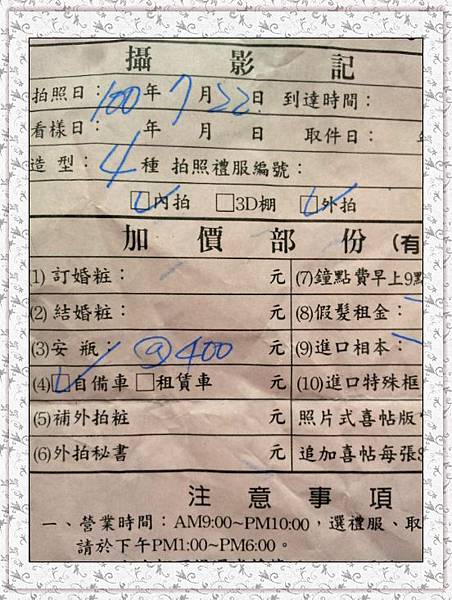 攝影記
拍照日：100年7月22日 到達時間：
看樣日： 年 月 日 取件日：
造型：4種 拍照禮服編號：
☑內拍 □3D棚 ☑外拍
加價部份(有
(1)訂婚粧： 元 (7)鐘點費早上9點
(2)結婚粧： 元 (8)假髮租金：
(3)安瓶：@400 元 (9)進口相本：
(4)☑自備車 □租賃車 元 (10)進口特殊框
(5)補外拍粧 元 照片式喜帖版
(6)外拍秘書 元 追加喜帖每張
注意事項
一、營業時間：AM9:00~PM10:00，選禮服、取
請於下午PM1:00~PM6:00。